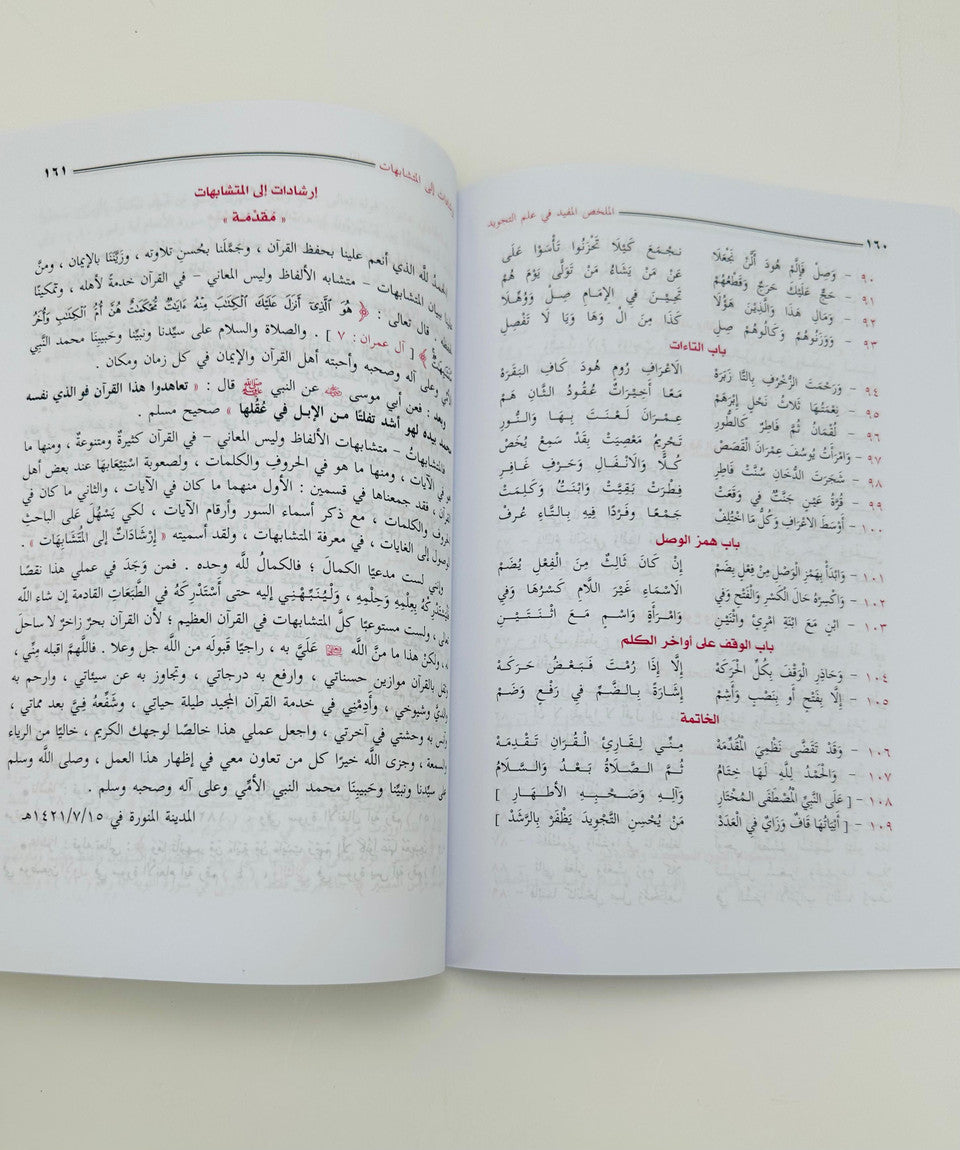 ١٦٠ الملخص المفيد في علم التجويد
٩٠ - وَصِلْ فَإِلَّمْ هُودَ أَلَّنْ نَجْعَلَا نَجْمَعَ كَيْلَا تَحْزَنُوا تَأْسَوْا عَلَى
٩١ - حَجٌّ عَلَيْكَ حَرَجٌ وَقَطْعُهُمْ عَنْ مَنْ يَشَاءُ مَنْ تَوَلَّى يَوْمَ هُمْ
٩٢ - وَمَالِ هَذَا وَالَّذِينَ هَؤُلَا تَحِينَ فِي الإِمَامِ صِلْ وَوُهِّلَا
٩٣ - وَوَزَنُوهُمْ وَكَالُوهُمْ صِلِ كَذَا مِنَ الْ وَهَا وَيَا لَا تَفْصِلِ
باب التاءات
٩٤ - وَرَحْمَتُ الزُّخْرُفِ بِالتَّا زَبَرَهْ الاعْرَافِ رُومِ هُودَ كَافِ البَقَرَهْ
٩٥ - نِعْمَتُهَا ثَلَاثُ نَحْلٍ إِبْرَهَمْ مَعًا أَخِيرَاتٌ عُقُودُ الثَّانِ هَمّ
٩٦ - لُقْمَانُ ثُمَّ فَاطِرٌ كَالطُّورِ عِمْرَانَ لَعْنَتَ بِهَا وَالنُّورِ
٩٧ - وَامْرَأَتٌ يُوسُفَ عِمْرَانَ الْقَصَصْ تَحْرِيمُ مَعْصِيَتْ بِقَدْ سَمِعْ يُخَصّ
٩٨ - شَجَرَتَ الدُّخَانِ سُنَّتْ فَاطِرِ كُلًّا وَالانْفَالِ وَحَرْفِ غَافِرِ
٩٩ - قُرَّةُ عَيْنٍ جَنَّتٌ فِي وَقَعَتْ فِطْرَتْ بَقِيَّتْ وَابْنَتُ وَكَلِمَتْ
١٠٠ - أَوْسَطَ الاعْرَافِ وَكُلُّ مَا اخْتُلِفْ جَمْعًا وَفَرْدًا فِيهِ بِالتَّاءِ عُرِفْ
باب همز الوصل
١٠١ - وَابْدَأْ بِهَمْزِ الْوَصْلِ مِنْ فِعْلٍ بِضَمْ إِنْ كَانَ ثَالِثٌ مِنَ الْفِعْلِ يُضَمْ
١٠٢ - وَاكْسِرْهُ حَالَ الْكَسْرِ وَالْفَتْحِ وَفِي الاسْمَاءِ غَيْرَ اللَّامِ كَسْرُهَا وَفِي
١٠٣ - ابْنٍ مَعَ ابْنَةِ امْرِئٍ وَاثْنَيْنِ وَامْرَأَةٍ وَاسْمٍ مَعَ اثْنَتَيْنِ
باب الوقف على أواخر الكلم
١٠٤ - وَحَاذِرِ الْوَقْفَ بِكُلِّ الْحَرَكَهْ إِلَّا إِذَا رُمْتَ فَبَعْضُ حَرَكَهْ
١٠٥ - إِلَّا بِفَتْحٍ أَو بِنَصْبٍ وَأَشِمْ إِشَارَةً بِالضَّمِّ فِي رَفْعٍ وَضَمْ
الخاتمة
١٠٦ - وَقَدْ تَقَضَّى نَظْمِيَ الْمُقَدِّمَهْ مِنِّي لِقَارِئِ الْقُرَانِ تَقْدِمَهْ
١٠٧ - وَالْحَمْدُ لِلَّهِ لَهَا خِتَامُ ثُمَّ الصَّلَاةُ بَعْدُ وَالسَّلَامُ
١٠٨ - [ عَلَى النَّبِيِّ الْمُصْطَفَى الْمُخْتَارِ وَآلِهِ وَصَحْبِهِ الأطْهَارِ ]
١٠٩ - [ أَبْيَاتُهَا قَافٌ وَزَايٌ فِي الْعَدَدْ مَنْ يُحْسِنِ التَّجْوِيدَ يَظْفَرْ بِالرَّشَدْ ]
إلى المتشابهات ١٦١
إرشادات إلى المتشابهات
« مقدمة »
الحمدُ للَّه الذي أنعم علينا بحفظ القرآن ، وجَمَّلَنا بحُسن تلاوته ، وزَيَّنَنَا بالإيمان ، ومنَّ
ببيان المتشابهات - متشابه الألفاظ وليس المعاني - في القرآن خدمةً لأهله ، وتمكينًا
قال تعالى : ﴿ هُوَ ٱلَّذِىٓ أَنزَلَ عَلَيْكَ ٱلْكِتَٰبَ مِنْهُ ءَايَٰتٌ مُّحْكَمَٰتٌ هُنَّ أُمُّ ٱلْكِتَٰبِ وَأُخَرُ
﴾ [ آل عمران : ٧ ] . والصلاة والسلام على سيِّدنا ونبيِّنا وحَبيبِنَا محمد النبي
الأمي وعلى آله وصحبه وأحبته أهل القرآن والإيمان في كل زمان ومكان .
وبعد : فعن أبي موسى ﷺ عن النبي ﷺ قال : « تعاهدوا هذا القرآن فوالذي نفسه
محمد بيده لهو أشد تفلتًا من الإبل في عُقُلها » صحيح مسلم .
فالمتشابهاتُ - متشابهات الألفاظ وليس المعاني - في القرآن كثيرةٌ ومتنوعةٌ ، ومنها ما
هو في الآيات ، ومنها ما هو في الحروفِ والكلمات ، ولصعوبة اسْتِيْعَابِهَا عند بعض أهل
القرآن ، فقد جمعناها في قسمين : الأول منهما ما كان في الآيات ، والثاني ما كان في
الحروف والكلمات ، مع ذكر أسماء السور وأرقام الآيات ، لكي يَسْهُلَ عَلَى الباحثِ
الوصول إلى الغايات ، في معرفة المتشابهات ، ولقد أسميته « إرْشَادَاتٌ إلى المُتَشَابِهَات » .
وإنني لست مدعيًا الكمالَ ؛ فالكمالُ للَّه وحده . فمن وَجَدَ في عملي هذا نقصًا
فَلْيَسْتَدْرِكْهُ بِعِلْمِهِ وَحِلْمِهِ ، وَلْيُنَبِّهْنِي إليه حتى أَسْتَدْرِكَهُ في الطَّبَعَاتِ القادمة إن شاء اللَّه
تعالى ، ولست مستوعبًا كلَّ المتشابهات في القرآن العظيم ؛ لأن القرآن بحرٌ زاخرٌ لا ساحلَ
له ، ولكنْ هذا ما منَّ اللَّه عَلَيَّ به ، راجيًا قَبولَه من اللَّه جل وعلا . فاللَّهم اقبله مِنِّي ،
وثقل بالقرآن موازين حسناتي ، وارفع به درجاتي ، وتجاوز به عن سيئاتي ، وارحم به
والديَّ وشيوخي ، وأَدِمْنِي في خدمة القرآن المجيد طيلة حياتي ، وشَفِّعْهُ فِيَّ بعد مماتي ،
وآنس به وحشتي في آخرتي ، واجعل عملي هذا خالصًا لوجهك الكريم ، خاليًا من الرياء
والسمعة ، وجزى اللَّه خيرًا كل من تعاون معي في إظهار هذا العمل ، وصلى اللَّه وسلم
على سيِّدنا ونبيِّنا وحَبيبِنَا محمد النبي الأمِّي وعلى آله وصحبه وسلم .
المدينة المنورة في ١٤٢١/٧/١٥هـ